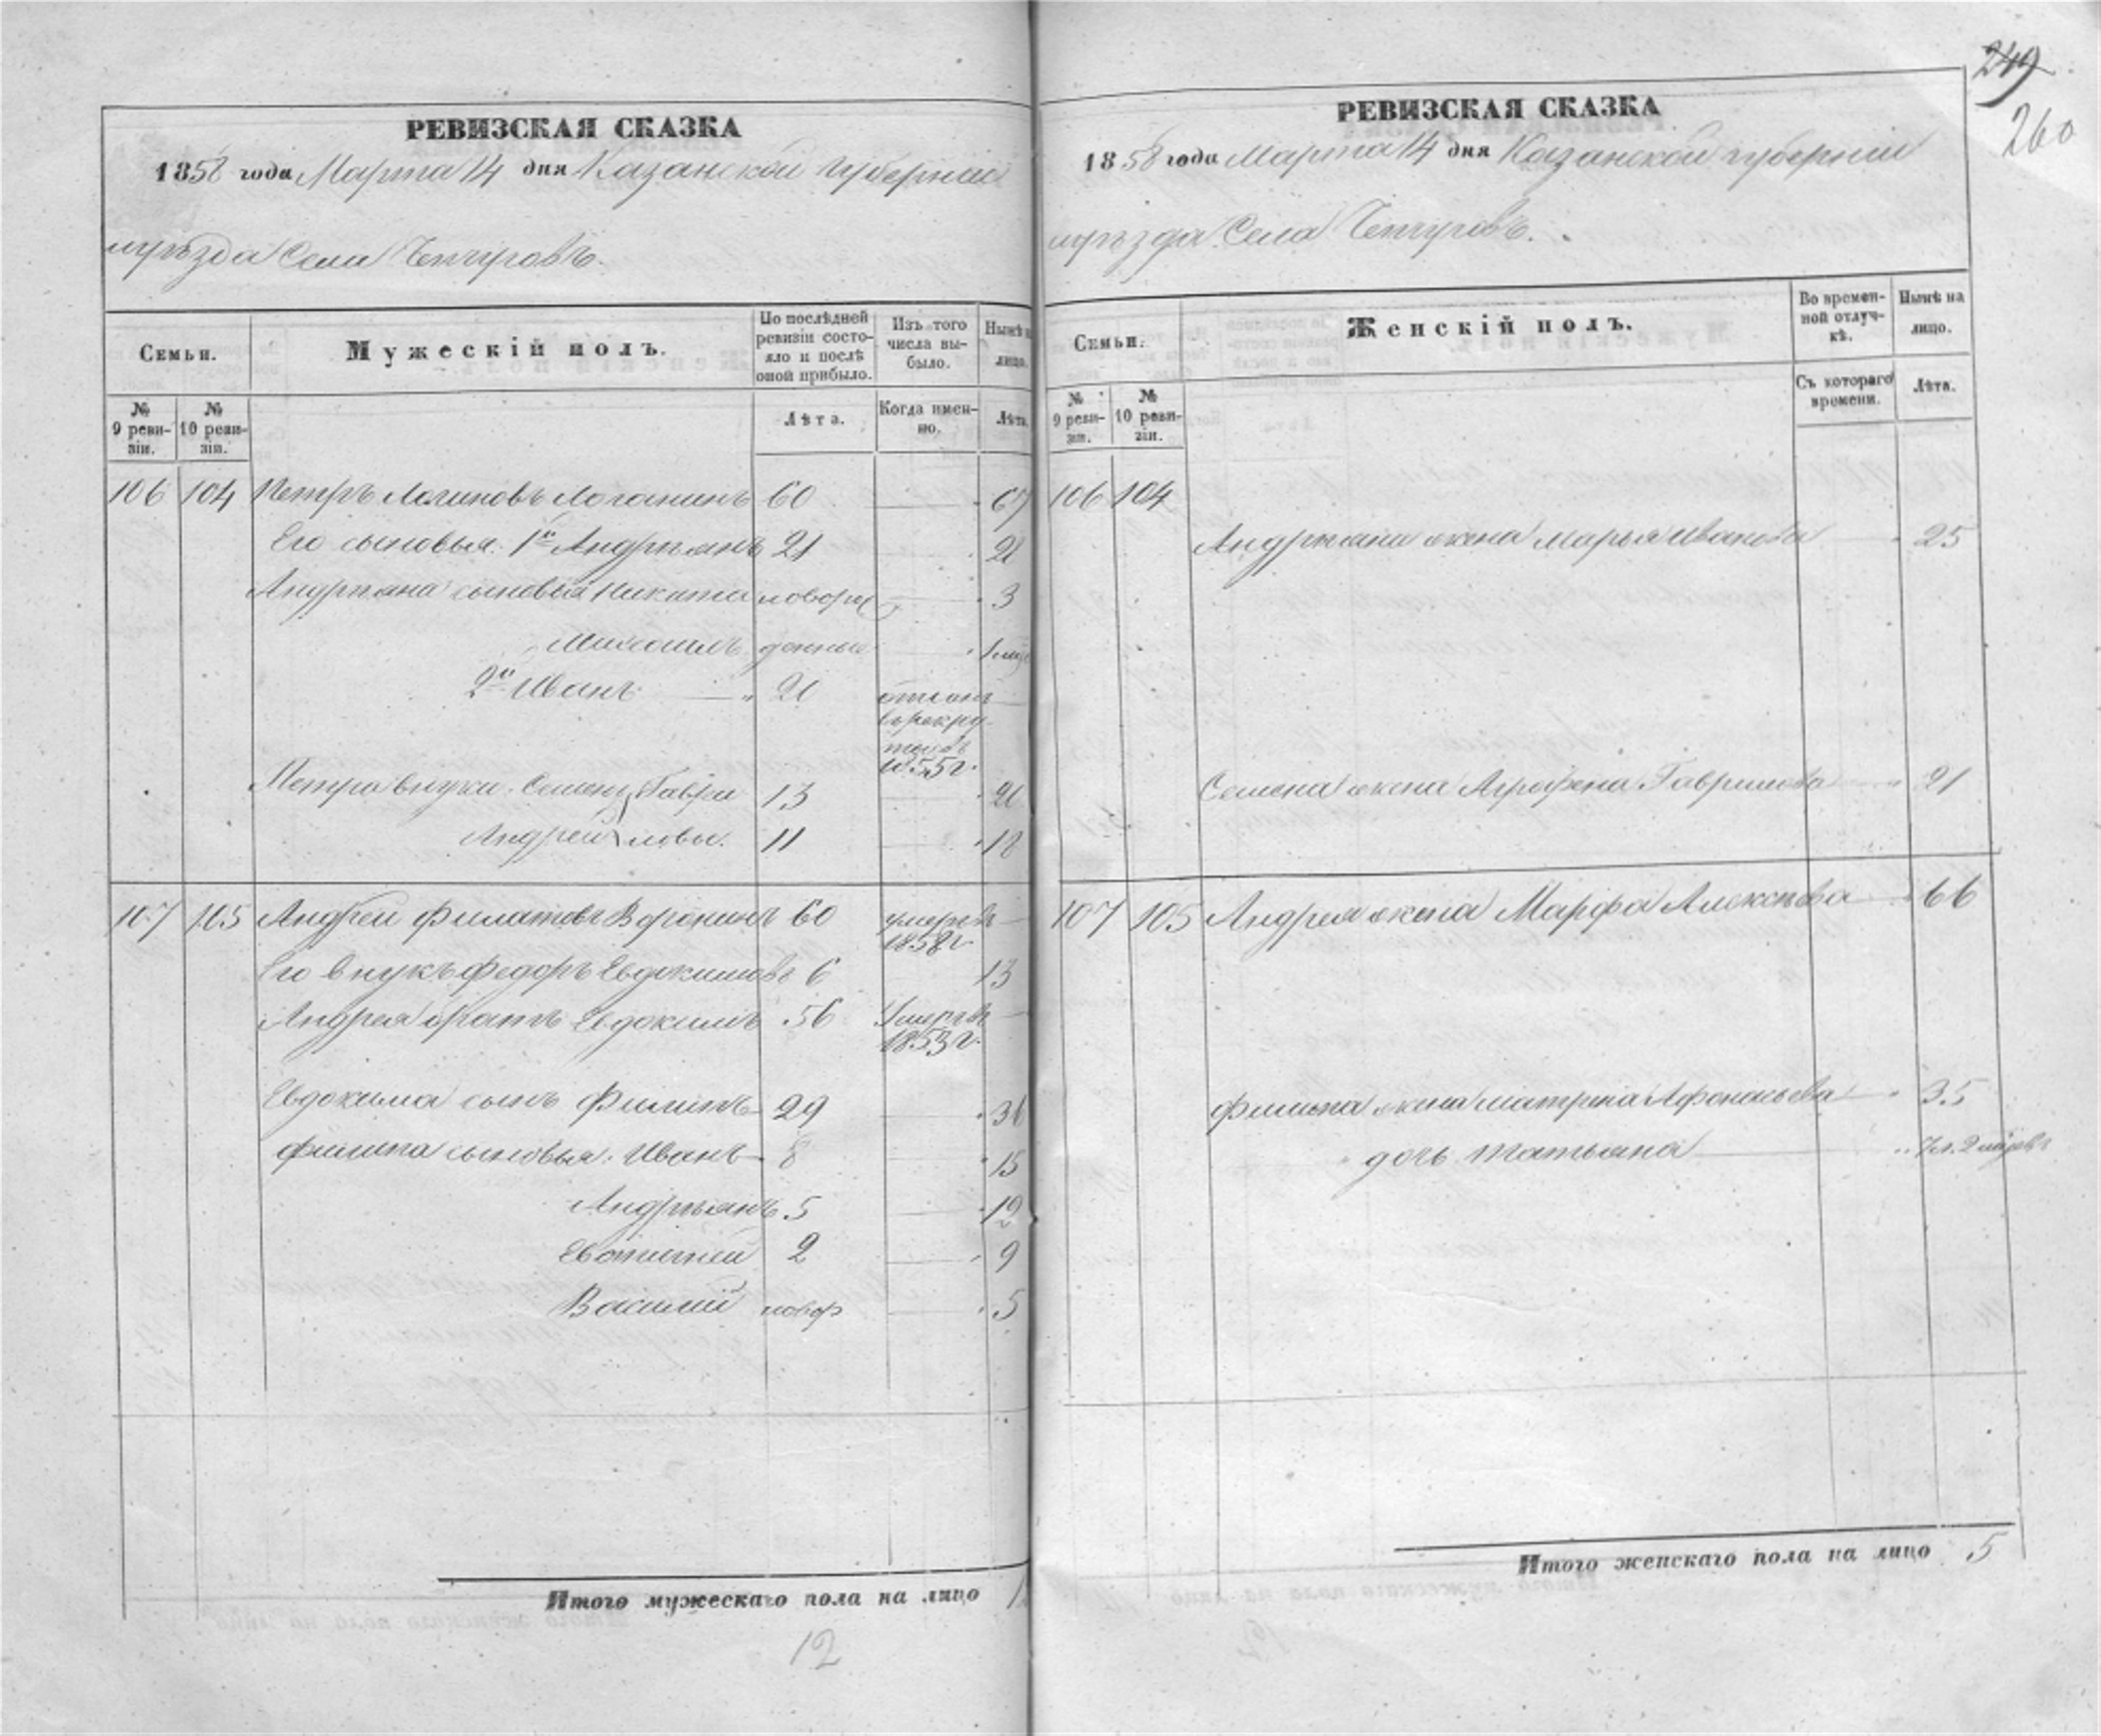 РЕВИЗСКАЯ СКАЗКА
1858 года Марта 14 дня Казанской губернии
уѣзда Села
Семьи.
Мужескій полъ.
По послѣдней ревизіи состояло и послѣ оной прибыло.
Изъ того числа выбыло.
Нынѣ на лицо.
№ 9 ревизіи.
№ 10 ревизіи.
Лѣта.
Когда именно.
Лѣта.
106 104 Петръ Логиновъ 60 67
Его сыновья 1й Андріянъ 21 28
Андріяна сыновья Никита новорож 3
Михаилъ денные 1
2й Иванъ 21 отданъ въ рекруты въ 1855 г.
Петра внуки Семенъ Гаври 13 20
Андрей ловы. 11 18
107 105 Андрей Филатовъ Воронинъ 60 умеръ въ 1858 г.
Его внукъ Федоръ Евдокимовъ 6 13
Андрея братъ Евдокимъ 56 Умеръ въ 1853 г.
Евдокима сынъ Филипъ 29 36
Филипа сыновья Иванъ 8 15
Андріянъ 5 12
2 9
Василій новор 5
Итого мужескаго пола на лицо
12
249
260
РЕВИЗСКАЯ СКАЗКА
1858 года Марта 14 дня Казанской губерніи
уѣзда Села
Семьи.
Женскій полъ.
Во временной отлучкѣ.
Нынѣ на лицо.
№ 9 ревизіи.
№ 10 ревизіи.
Съ котораго времени.
Лѣта.
106 104
Андріяна жена Марья Иванова 25
Семена жена Агрофена Гаврилова 21
107 105 Андрея жена Марфа Алексѣева 66
Филипа жена Матрена Афонасьева 35
дочь Татьяна
Итого женскаго пола на лицо 5